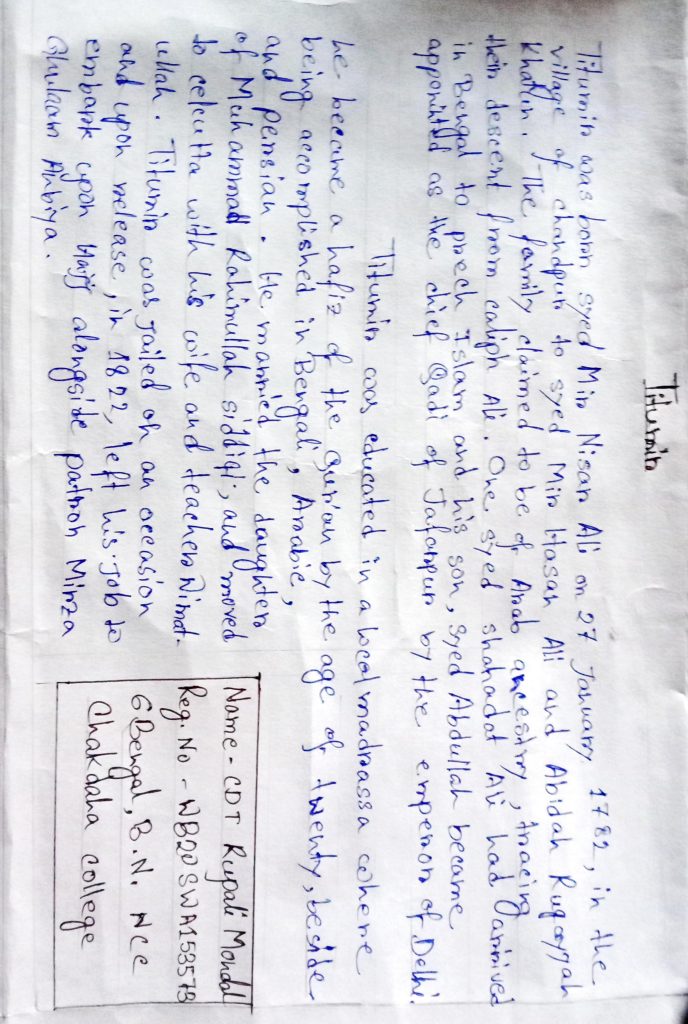 Titumir
Titumir was born syed Mir Nisar Ali on 27 January 1782, in the
village of chandpur to syed Mir Hasan Ali and Abidah Ruqayyah
Khatun. The family claimed to be of Arab ancestry, tracing
their descent from caliph Ali. One syed shahadat Ali had arrived
in Bengal to prech Islam and his son, syed Abdullah became
appointed as the chief Qadi of Jafarpur by the emperor of Delhi.
Titumir was educated in a local madrassa where
he became a hafiz of the Qur'an by the age of twenty, beside
being accomplished in Bengali, Arabic,
and persian. He married the daughter
of Muhammad Rahimullah siddiqi, and moved
to calcutta with his wife and teacher Nimat-
ullah. Titumir was jailed on an occasion
and upon release, in 1822, left his job to
embark upon Hajj alongside patron Mirza
Ghulam Anbiya.
Name - CDT Rupali Mondal
Reg. No - WB20SWA153573
6 Bengal, B.N. NCC
Chakdaha college